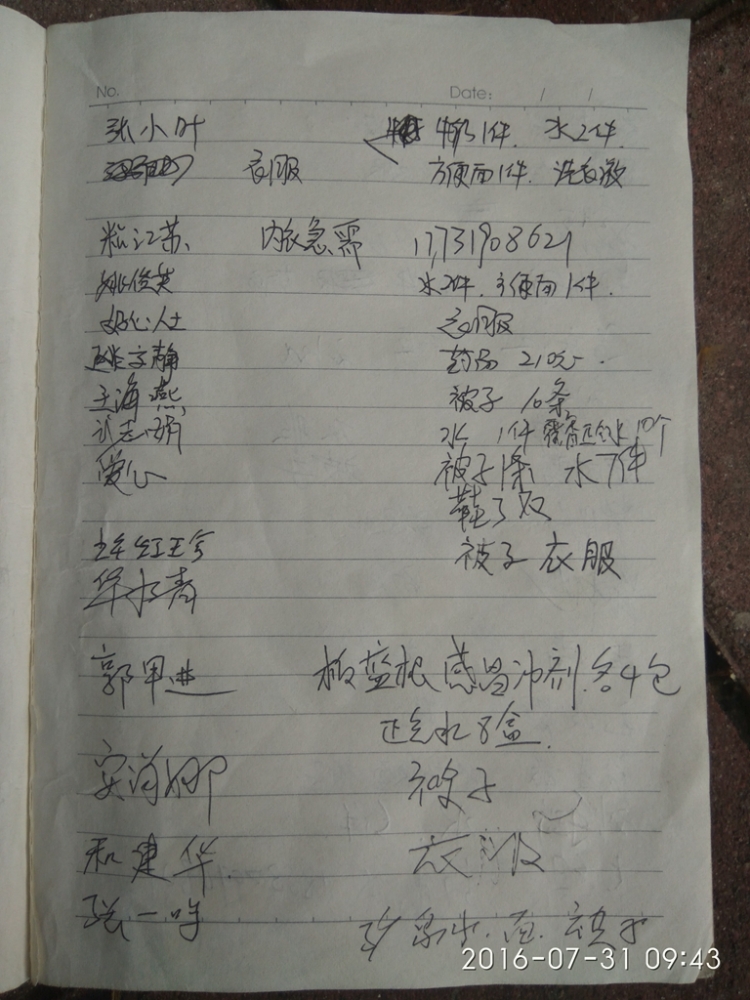 No. Date: / /
张小叶 1件. 水2件.
衣服 方便面1件. 洗衣液
江苏、 内衣急需 17731908621
姚俊英 水2件. 方便面1件.
好心人士 衣服
文静 药品 210元.
王海燕 被子 10条
志娟 水 1件 藿香正气水 10个
爱心 被子1条 水7件
鞋子 双
红 被子 衣服
华水青
郭甲进 板蓝根 感冒冲剂 各4包
正气水 8盒.
安海娜 被子
和建华 衣服
张一鸣 矿泉水. 面.
2016-07-31 09:43